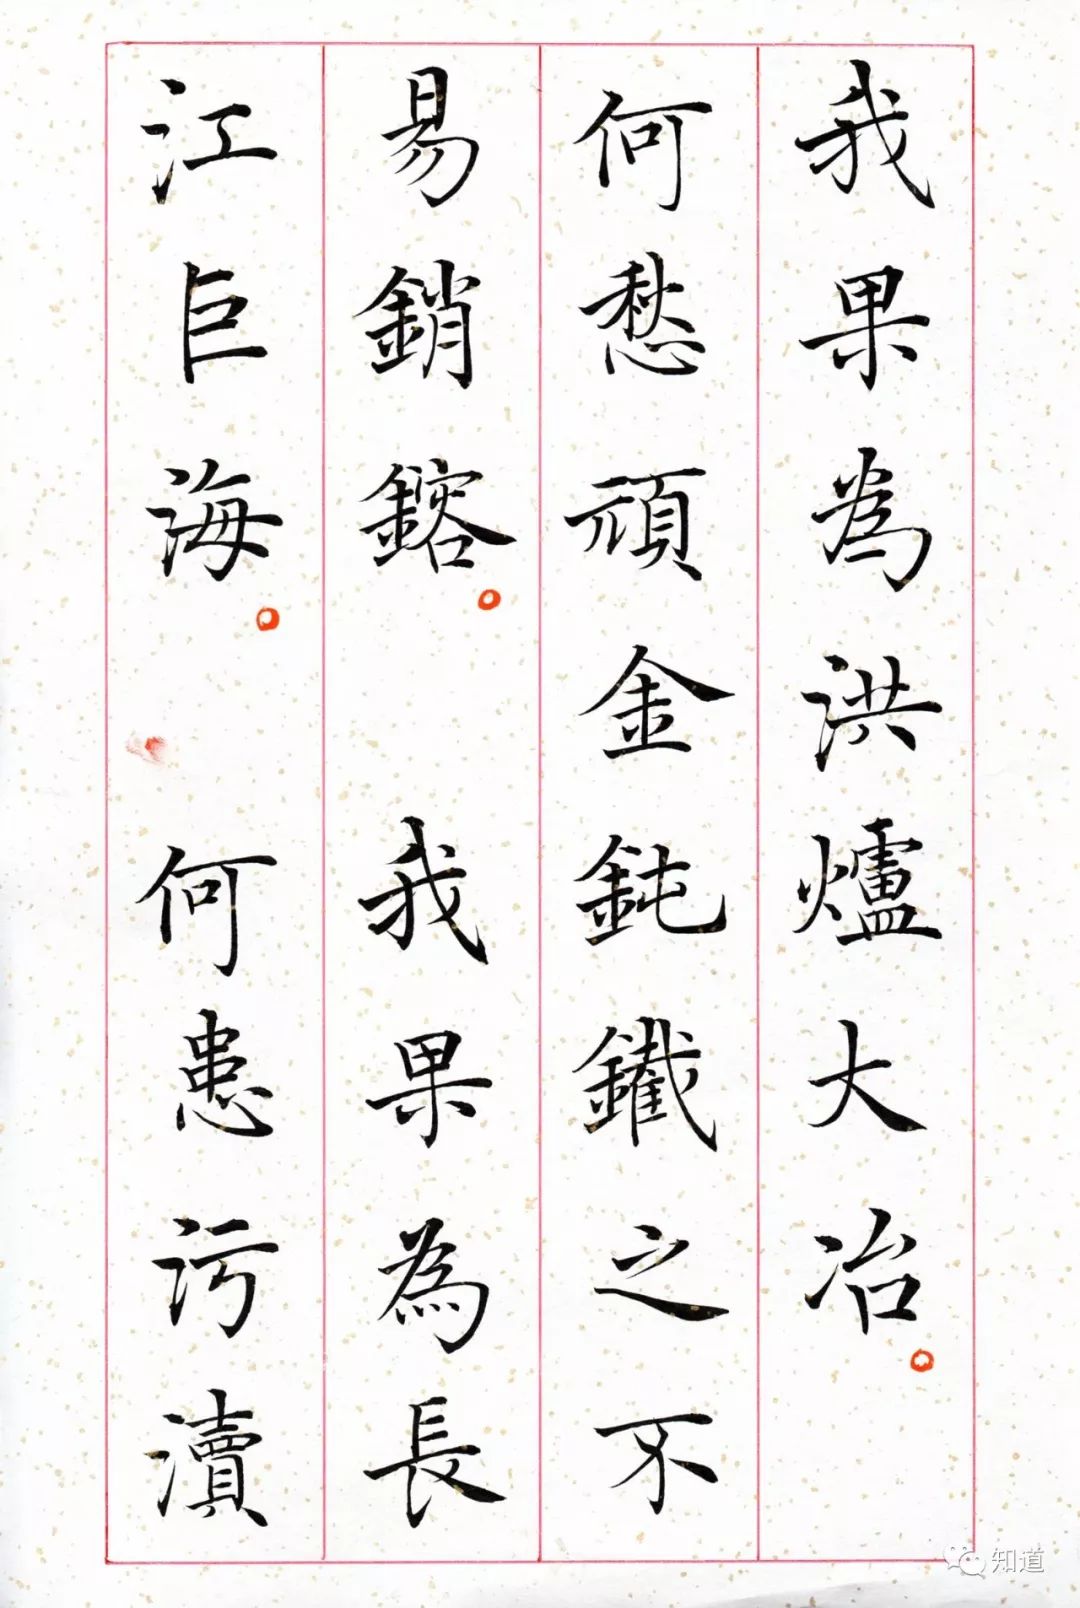 我果為洪爐大冶。
何愁頑金鈍鐵之不
易銷鎔。我果為長
江巨海。何患污瀆
知道